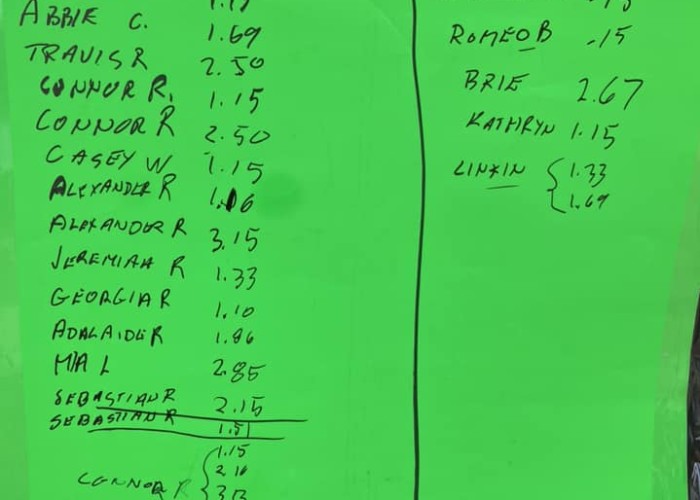 ABBIE C.
TRAVIS R 1.69
CONNOR R. 2.50
CONNOR R 1.15
CASEY W 2.50
ALEXANDER R 1.15
ALEXANDER R
JEREMIAH R 3.15
GEORGIA R 1.33
ADALAIDE R 1.10
MIA L 2.85
SEBASTIAN R 2.15
SEBASTIAN R 1.51
CONNOR R 1.15
ROMEO B .15
BRIE 2.67
KATHRYN 1.15
LINKIN 1.33
1.69